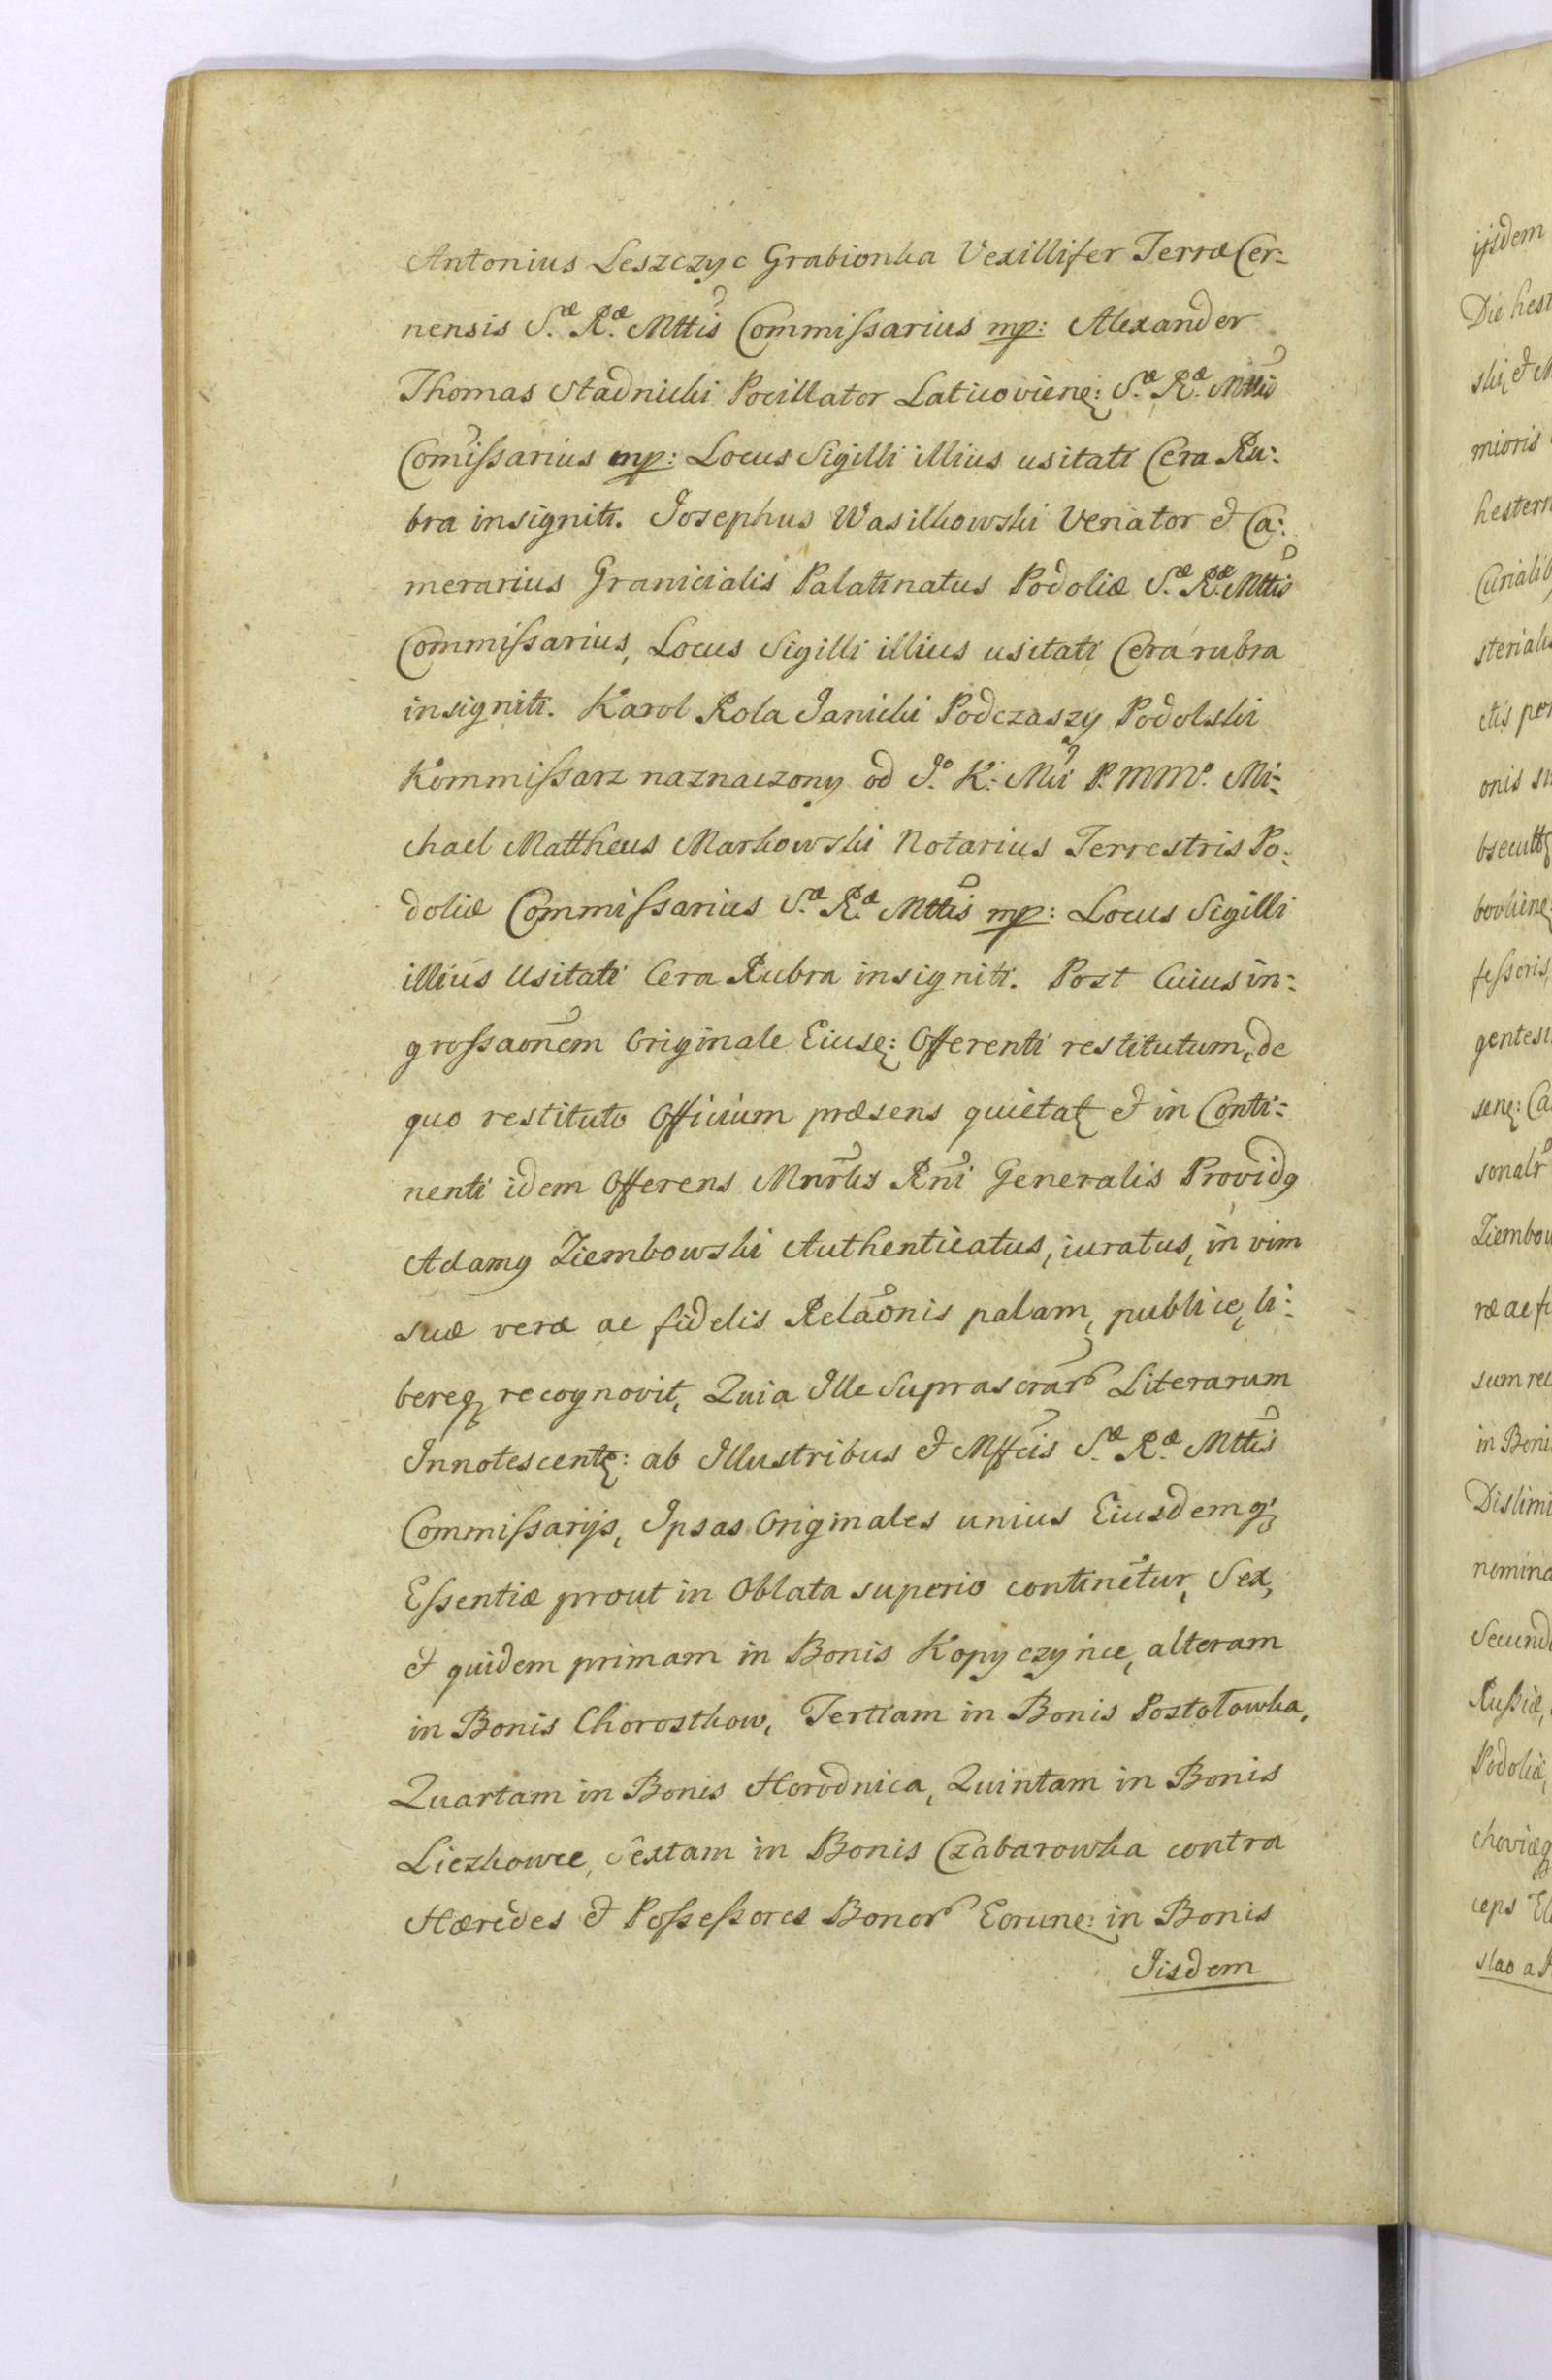 Antonius Leszczyc Grabionka Vexillifer Terræ Cer=
nensis S.æ R.æ Mttis Commissarius mp: Alexander
Thomas Stadnicki Pocillator Laticoviene: S.æ R.æ Mttis
Comissarius mp: Locus Sigilli illius usitati Cera Ru:
bra insigniti. Josephus Wasilkowski Venator et Ca:
merarius Granicialis Palatinatus Podoliæ S.æ R.æ Mttis
Commissarius, Locus Sigilli illius usitati Cera rubra
insigniti. Karol Rola Janicki Podczaszy Podolski
Kommissarz naznaczony od J.o K. Mci P. M Mo. Mi=
chael Mattheus Markowski Notarius Terrestris Po:
doliæ Commissarius S.æ R.æ Mttis mp: Locus Sigilli
illius Usitati Cera Rubra insigniti. Post Cuius in:
grossaōnem Originale Eiusę: Offerenti restitutum, de
quo restituto Officium præsens quietat et in Conti=
nenti idem Offerens Mnrlis Rni Generalis Providꝯ
Adamꝯ Ziembowski Authenticatus, iuratus, in vim
suæ veræ ac fidelis Relaōnis palam, publice, li:
bereq, recognovit, Quia Ille Suprascrar Literarum
Innotescentę: ab Illustribus et Mffcis S.æ R.æ Mttis
Commissarijs, Ipsas Originales unius Eiusdemq;
Essentiæ prout in Oblata superio continētur, Sex,
et quidem primam in Bonis Kopyczyńce, alteram
in Bonis Chorostkow, Tertiam in Bonis Postołowka,
Quartam in Bonis Horodnica, Quintam in Bonis
Liczkowce, Sextam in Bonis Czabarowka contra
Hæredes et Possessores Bonor Eorunę: in Bonis
Jisdem
ijsdem
Die hest
mioris
hestern
sterialis
onis su
gentes
Ziembow
ræ ac fi
sum rec
in Boni
Dislimi
nomina
Secund
Russiæ,
Podoliæ,
ceps
slao a